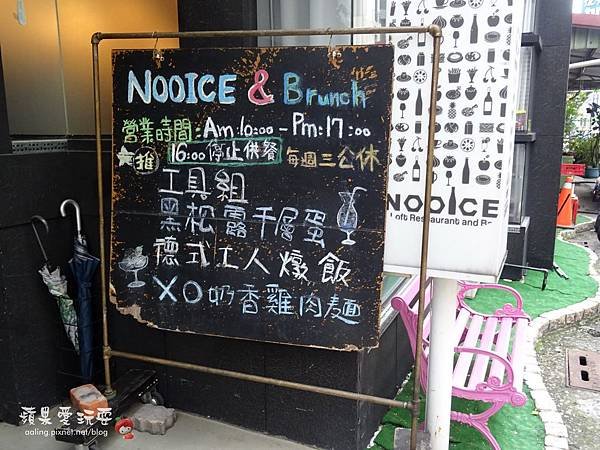 NOOICE & Brunch
營業時間:Am:10:00-Pm:17:00
★推 16:00停止供餐 每週三公休
工具組
黑松露千層蛋
德式工人燉飯
XO奶香雞肉麵
NOOICE
Loft Restaurant and Ba
蘋果愛玩耍
aaling.pixnet.net/blog